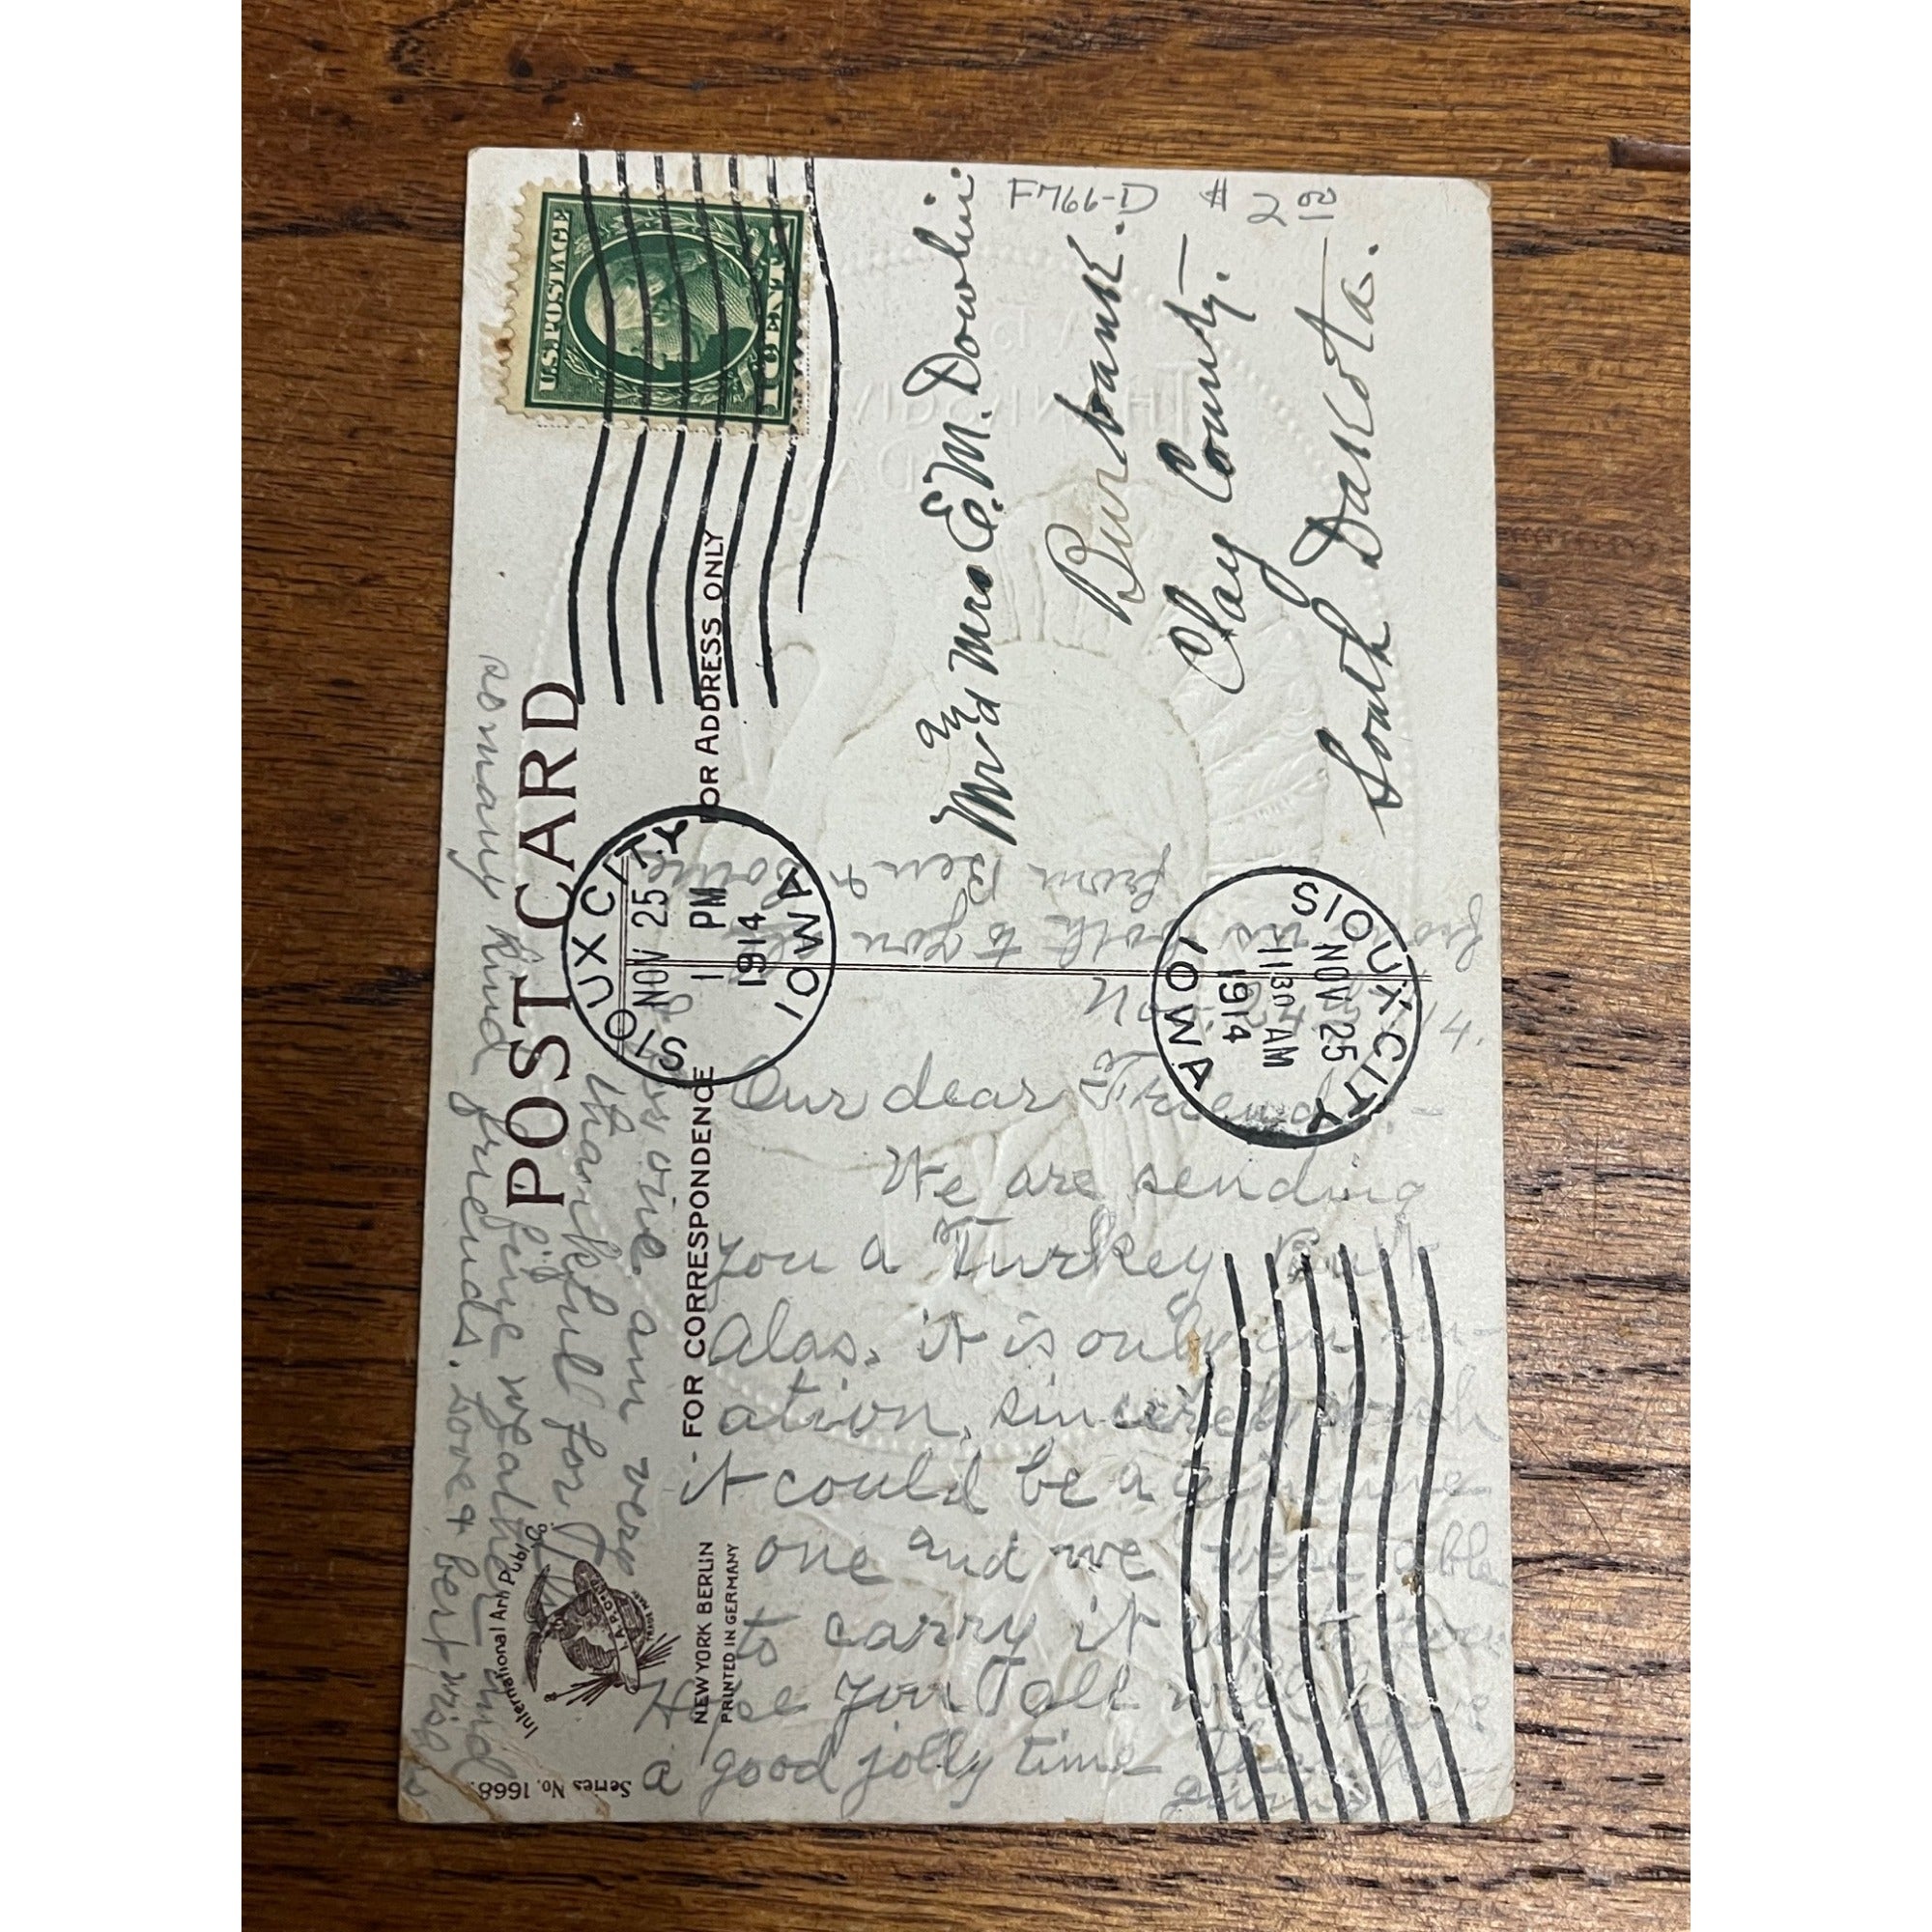 F766-D $2.00
POST CARD
FOR CORRESPONDENCE
FOR ADDRESS ONLY
U.S. POSTAGE
1 CENT 1
SIOUX CITY
NOV 25
1 PM
1914
IOWA
SIOUX CITY
NOV 25
11 30 AM
1914
IOWA
Mr and Mrs E. M. Dowlin
Burbank.
Clay County.
South Dakota.
Our dear Friends
We are sending
you a Turkey But
Alas, it is only an im-
ation, sincerely wish
it could be a genuine
one and we were able
to carry it out to you
Hope you all will have
a good jolly time thanks-
giving
from Ben &
both to you
one am very
thankful for this
fine weather and
so many kind friends. Love & best wishes
International Art Publ. Co.
I.A.P. Co.
TRADE MARK
NEW YORK BERLIN
PRINTED IN GERMANY
Series No. 1668.